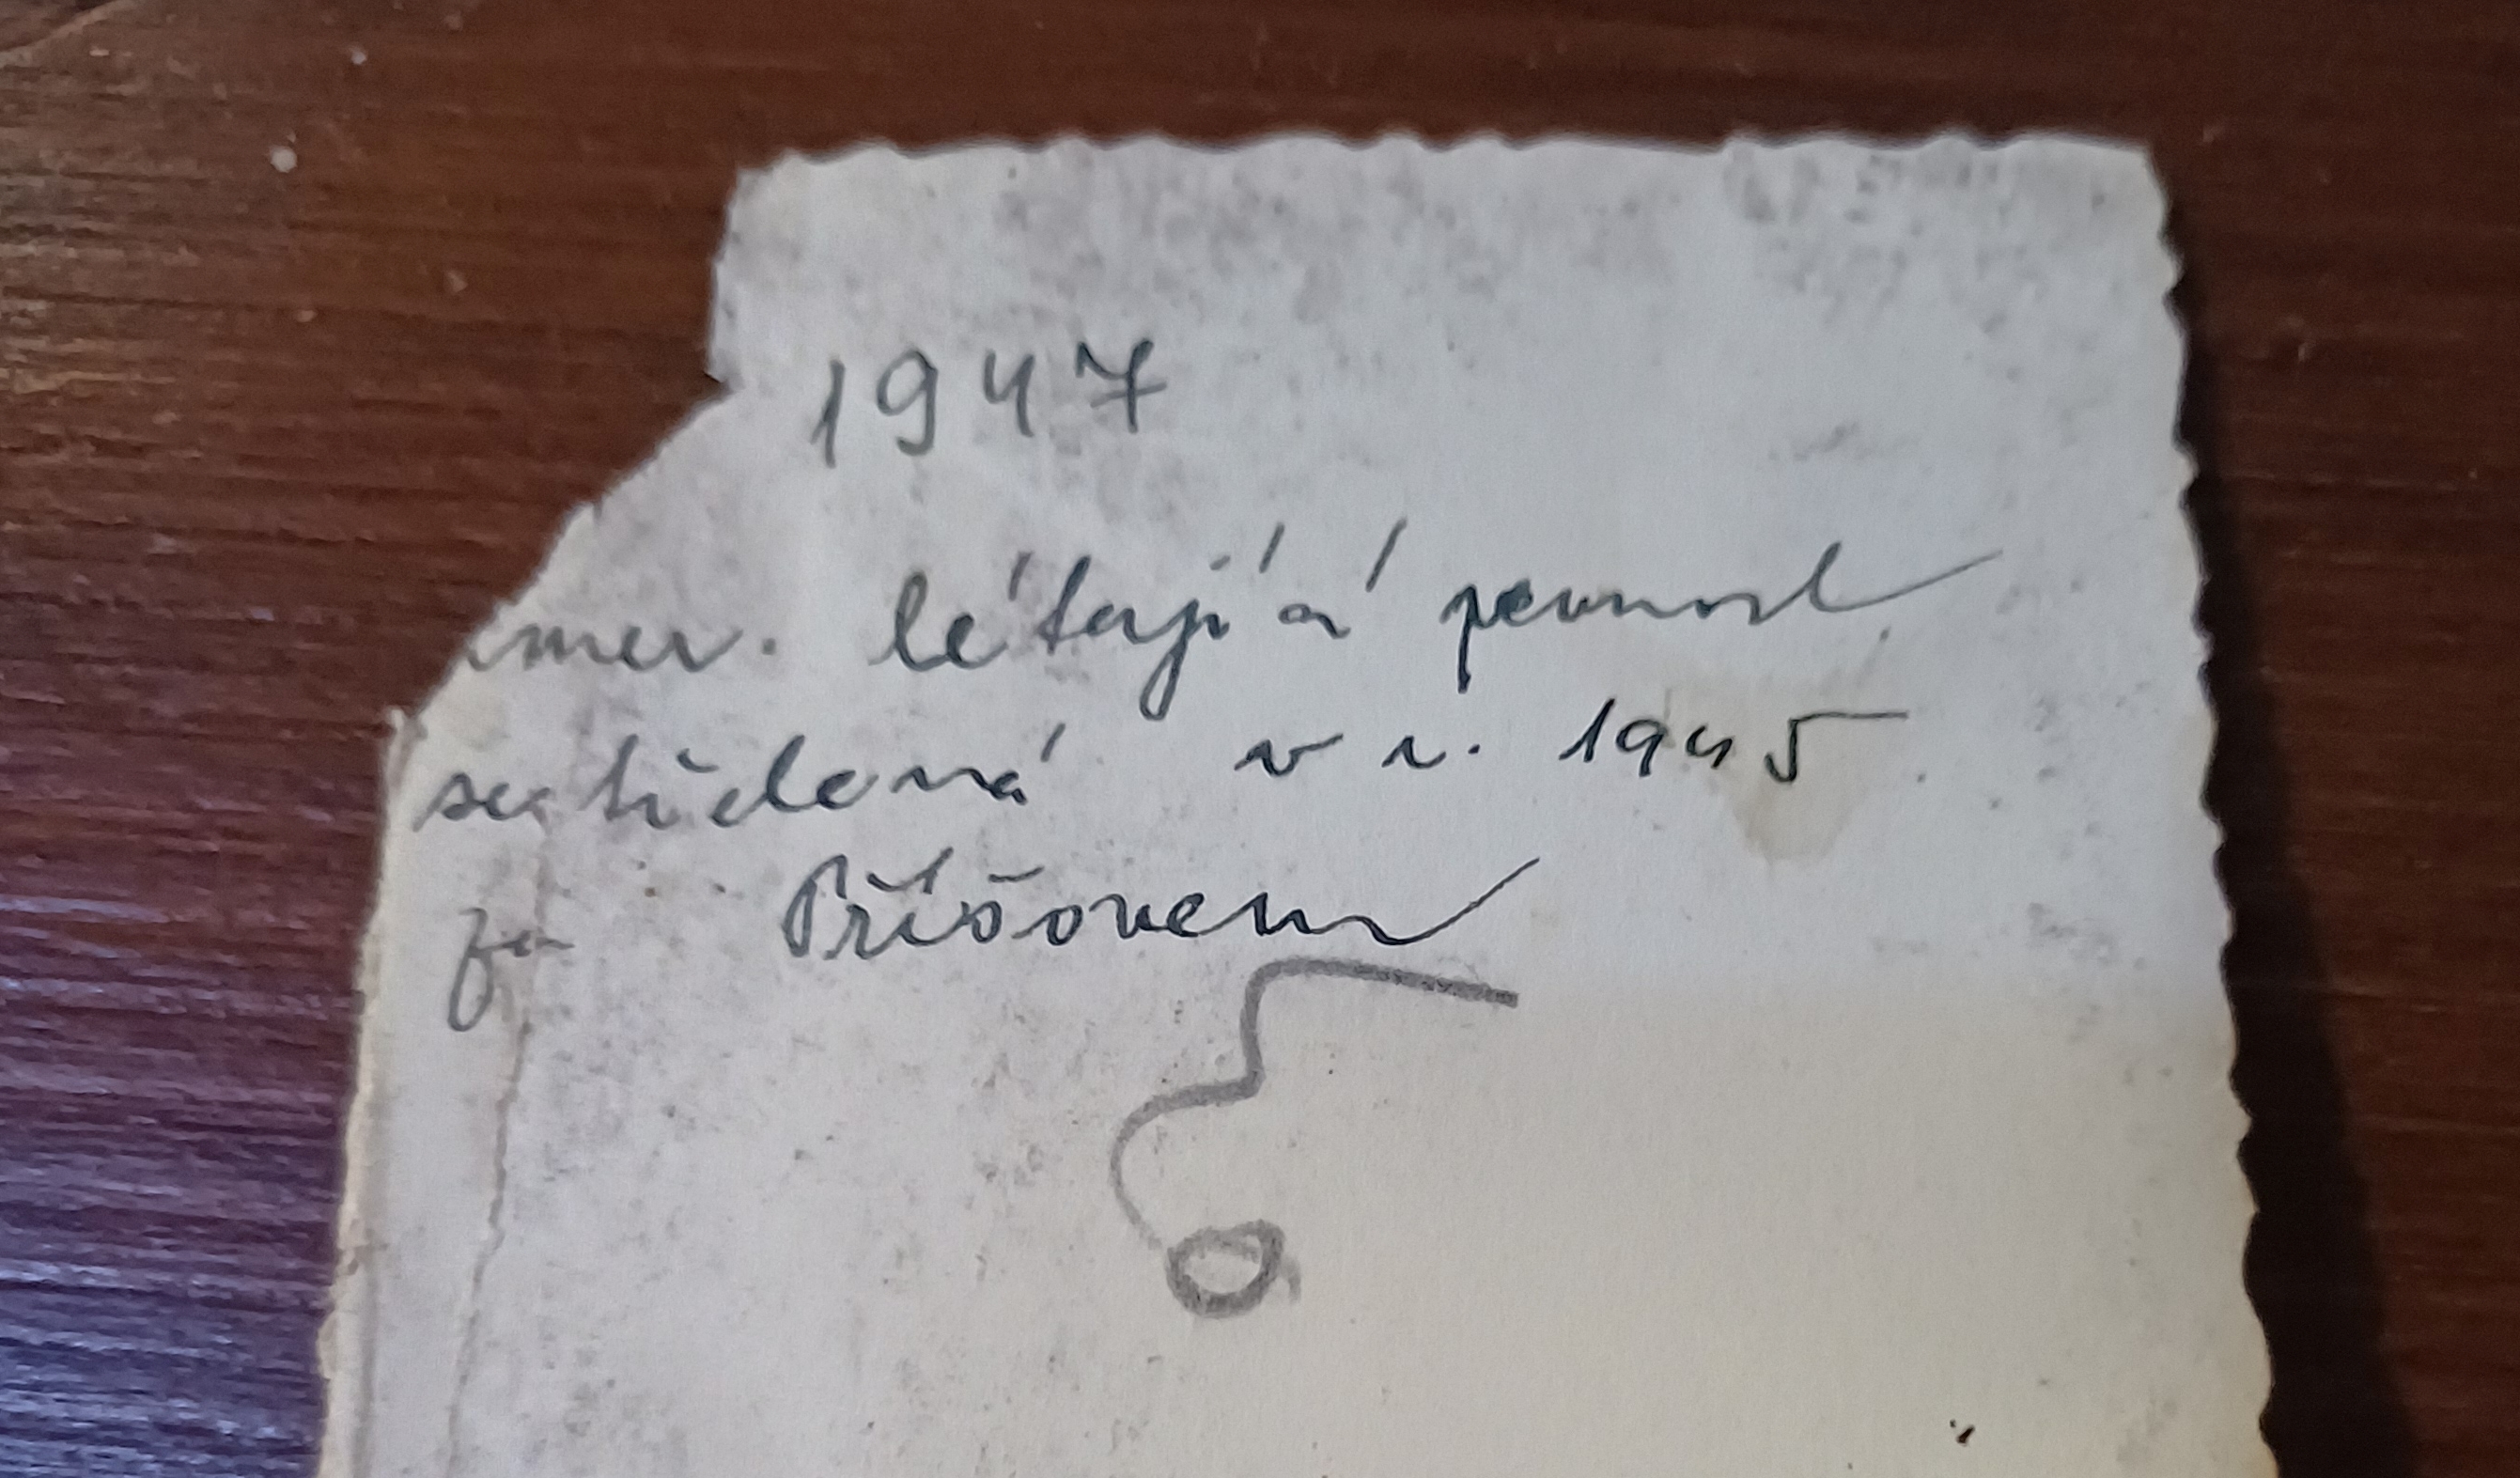 1947
amer. létající pevnost
sestřelená v r. 1945
za Příšovem